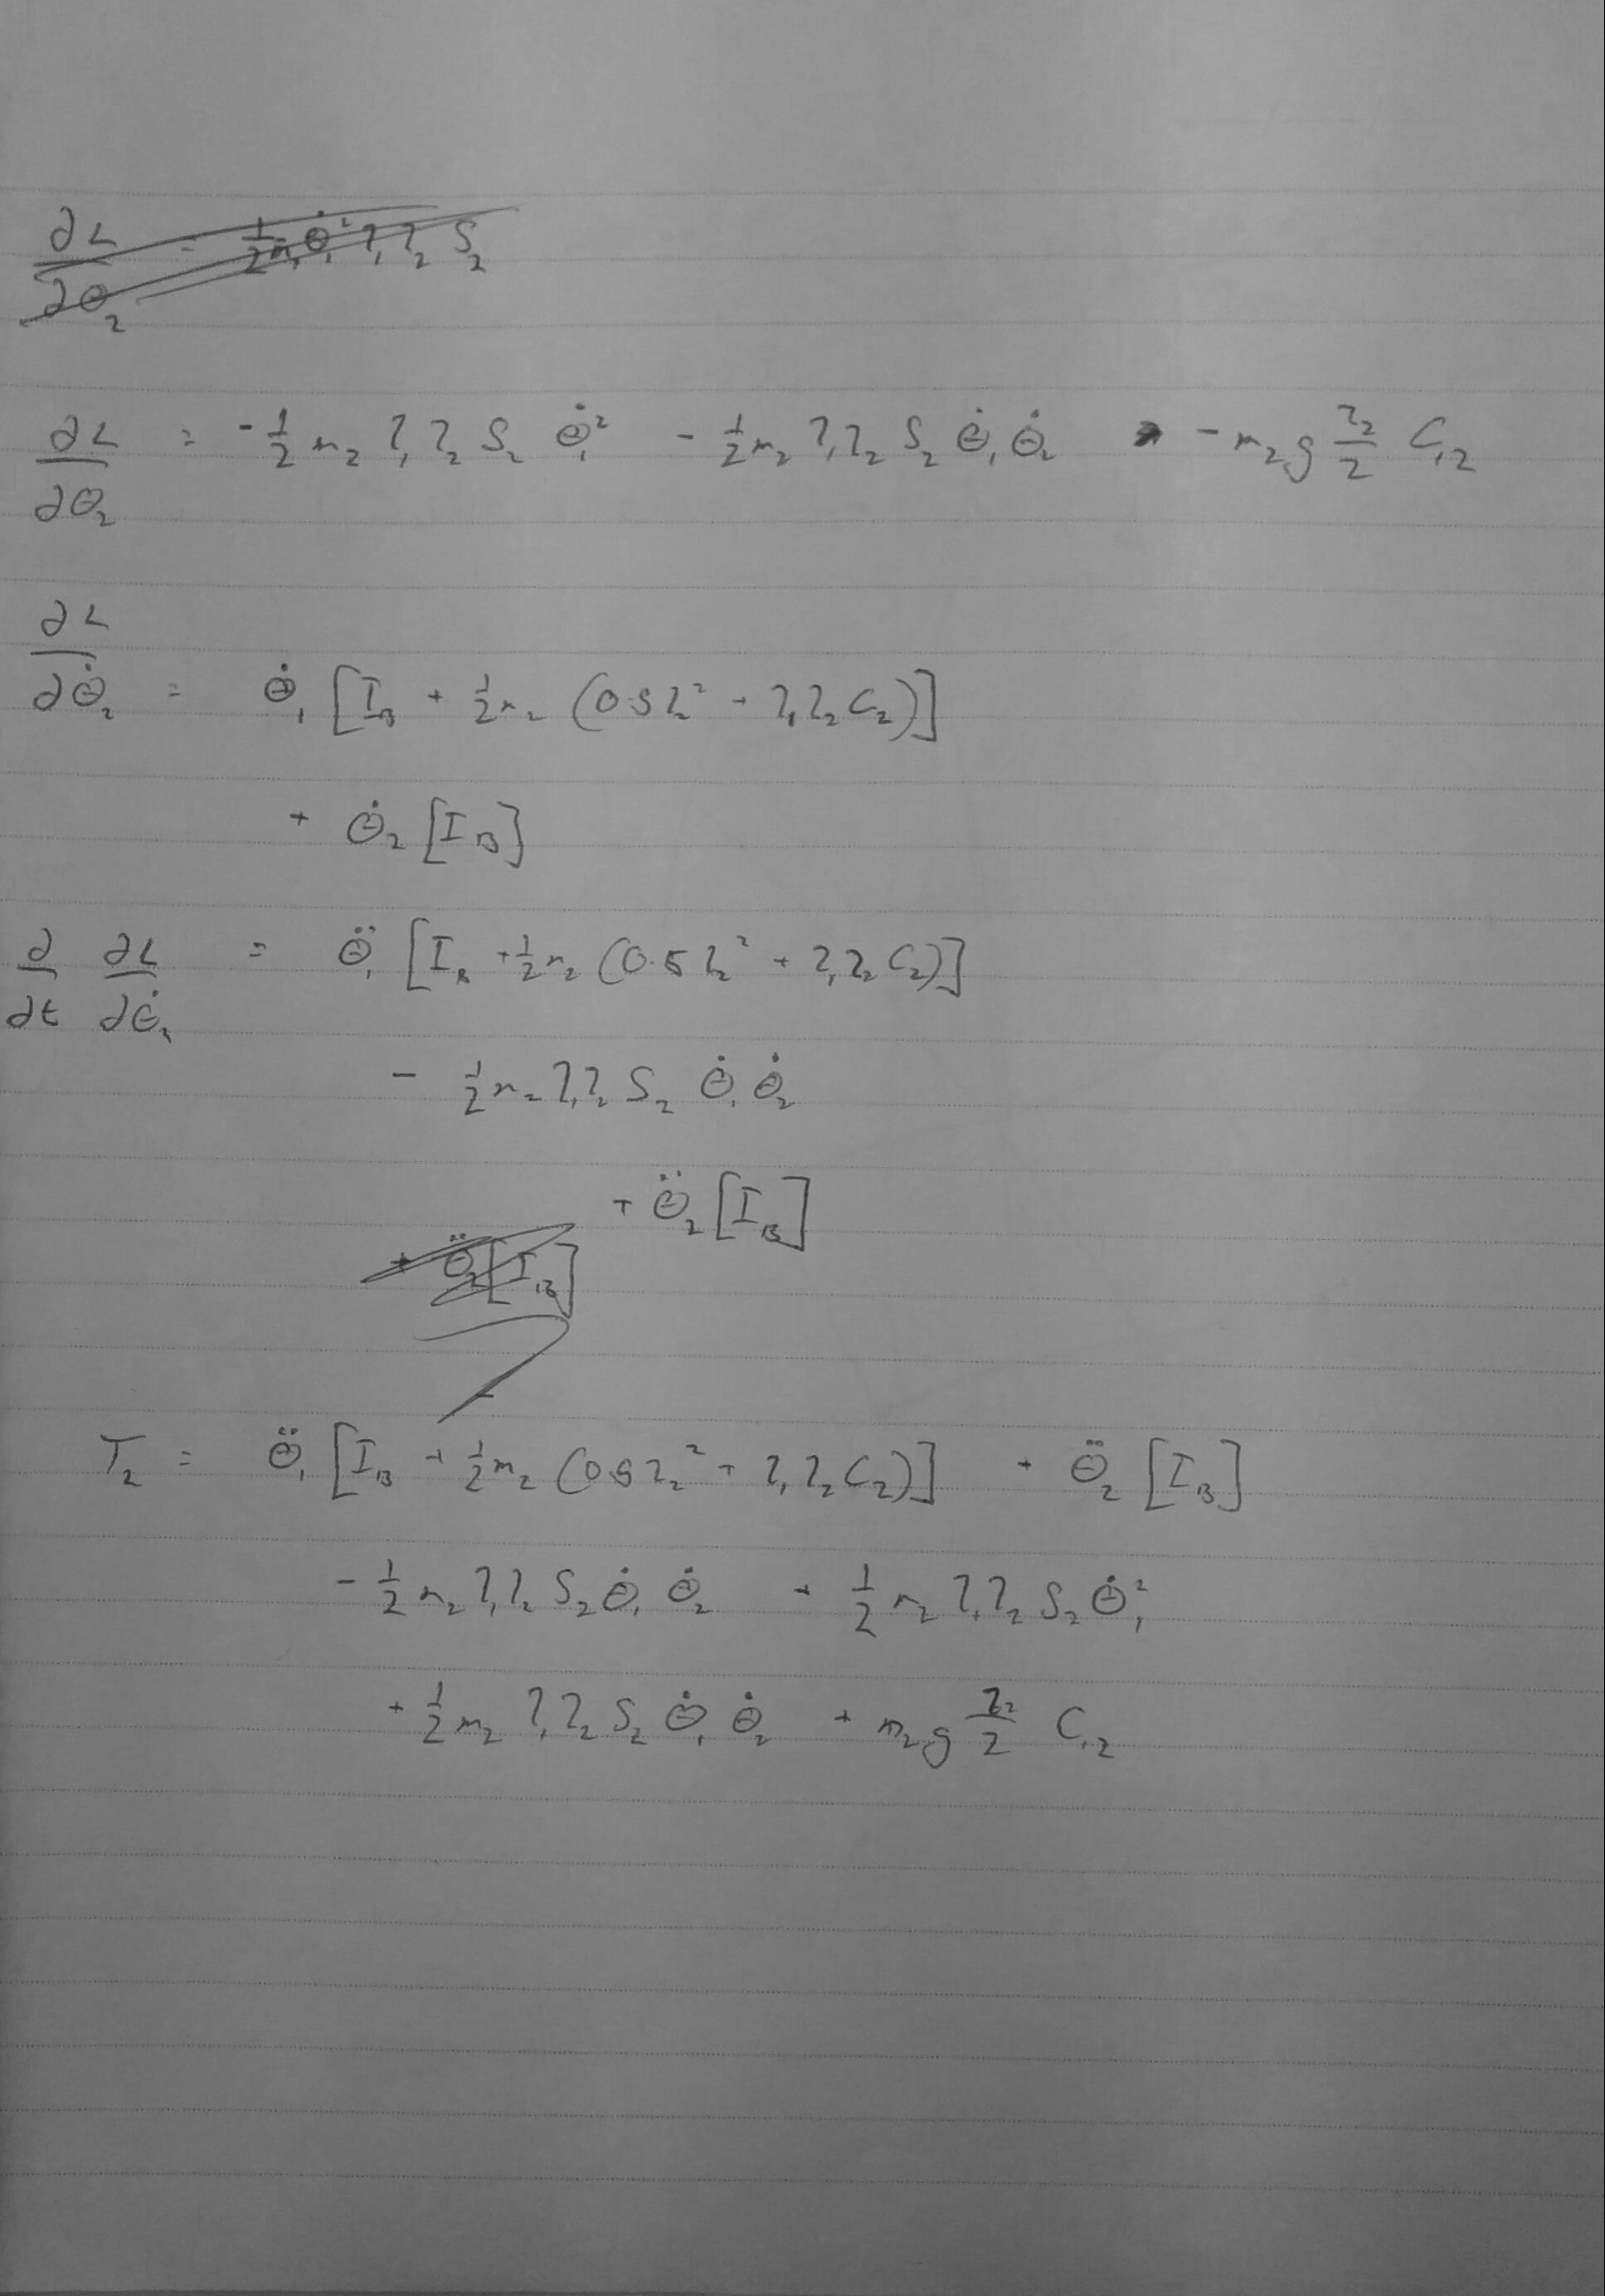 ∂L/∂θ₂ = ½ m₁ θ̇₁² l₁ l₂ S₂
∂L/∂θ₂ = -½ m₂ l₁ l₂ S₂ θ̇₁² - ½ m₂ l₁ l₂ S₂ θ̇₁ θ̇₂ - m₂ g l₂/2 C₁₂
∂L/∂θ̇₂ = θ̇₁ [I_B + ½ m₂ (0.5 l₂² + l₁ l₂ C₂)]
+ θ̇₂ [I_B]
∂/∂t ∂L/∂θ̇₂ = θ̈₁ [I_B + ½ m₂ (0.5 l₂² + l₁ l₂ C₂)]
- ½ m₂ l₁ l₂ S₂ θ̇₁ θ̇₂
+ θ̈₂ [I_B]
+ θ̈₂ [I_B]
T₂ = θ̈₁ [I_B + ½ m₂ (0.5 l₂² + l₁ l₂ C₂)] + θ̈₂ [I_B]
- ½ m₂ l₁ l₂ S₂ θ̇₁ θ̇₂ + ½ m₂ l₁ l₂ S₂ θ̇₁²
+ ½ m₂ l₁ l₂ S₂ θ̇₁ θ̇₂ + m₂ g l₂/2 C₁₂